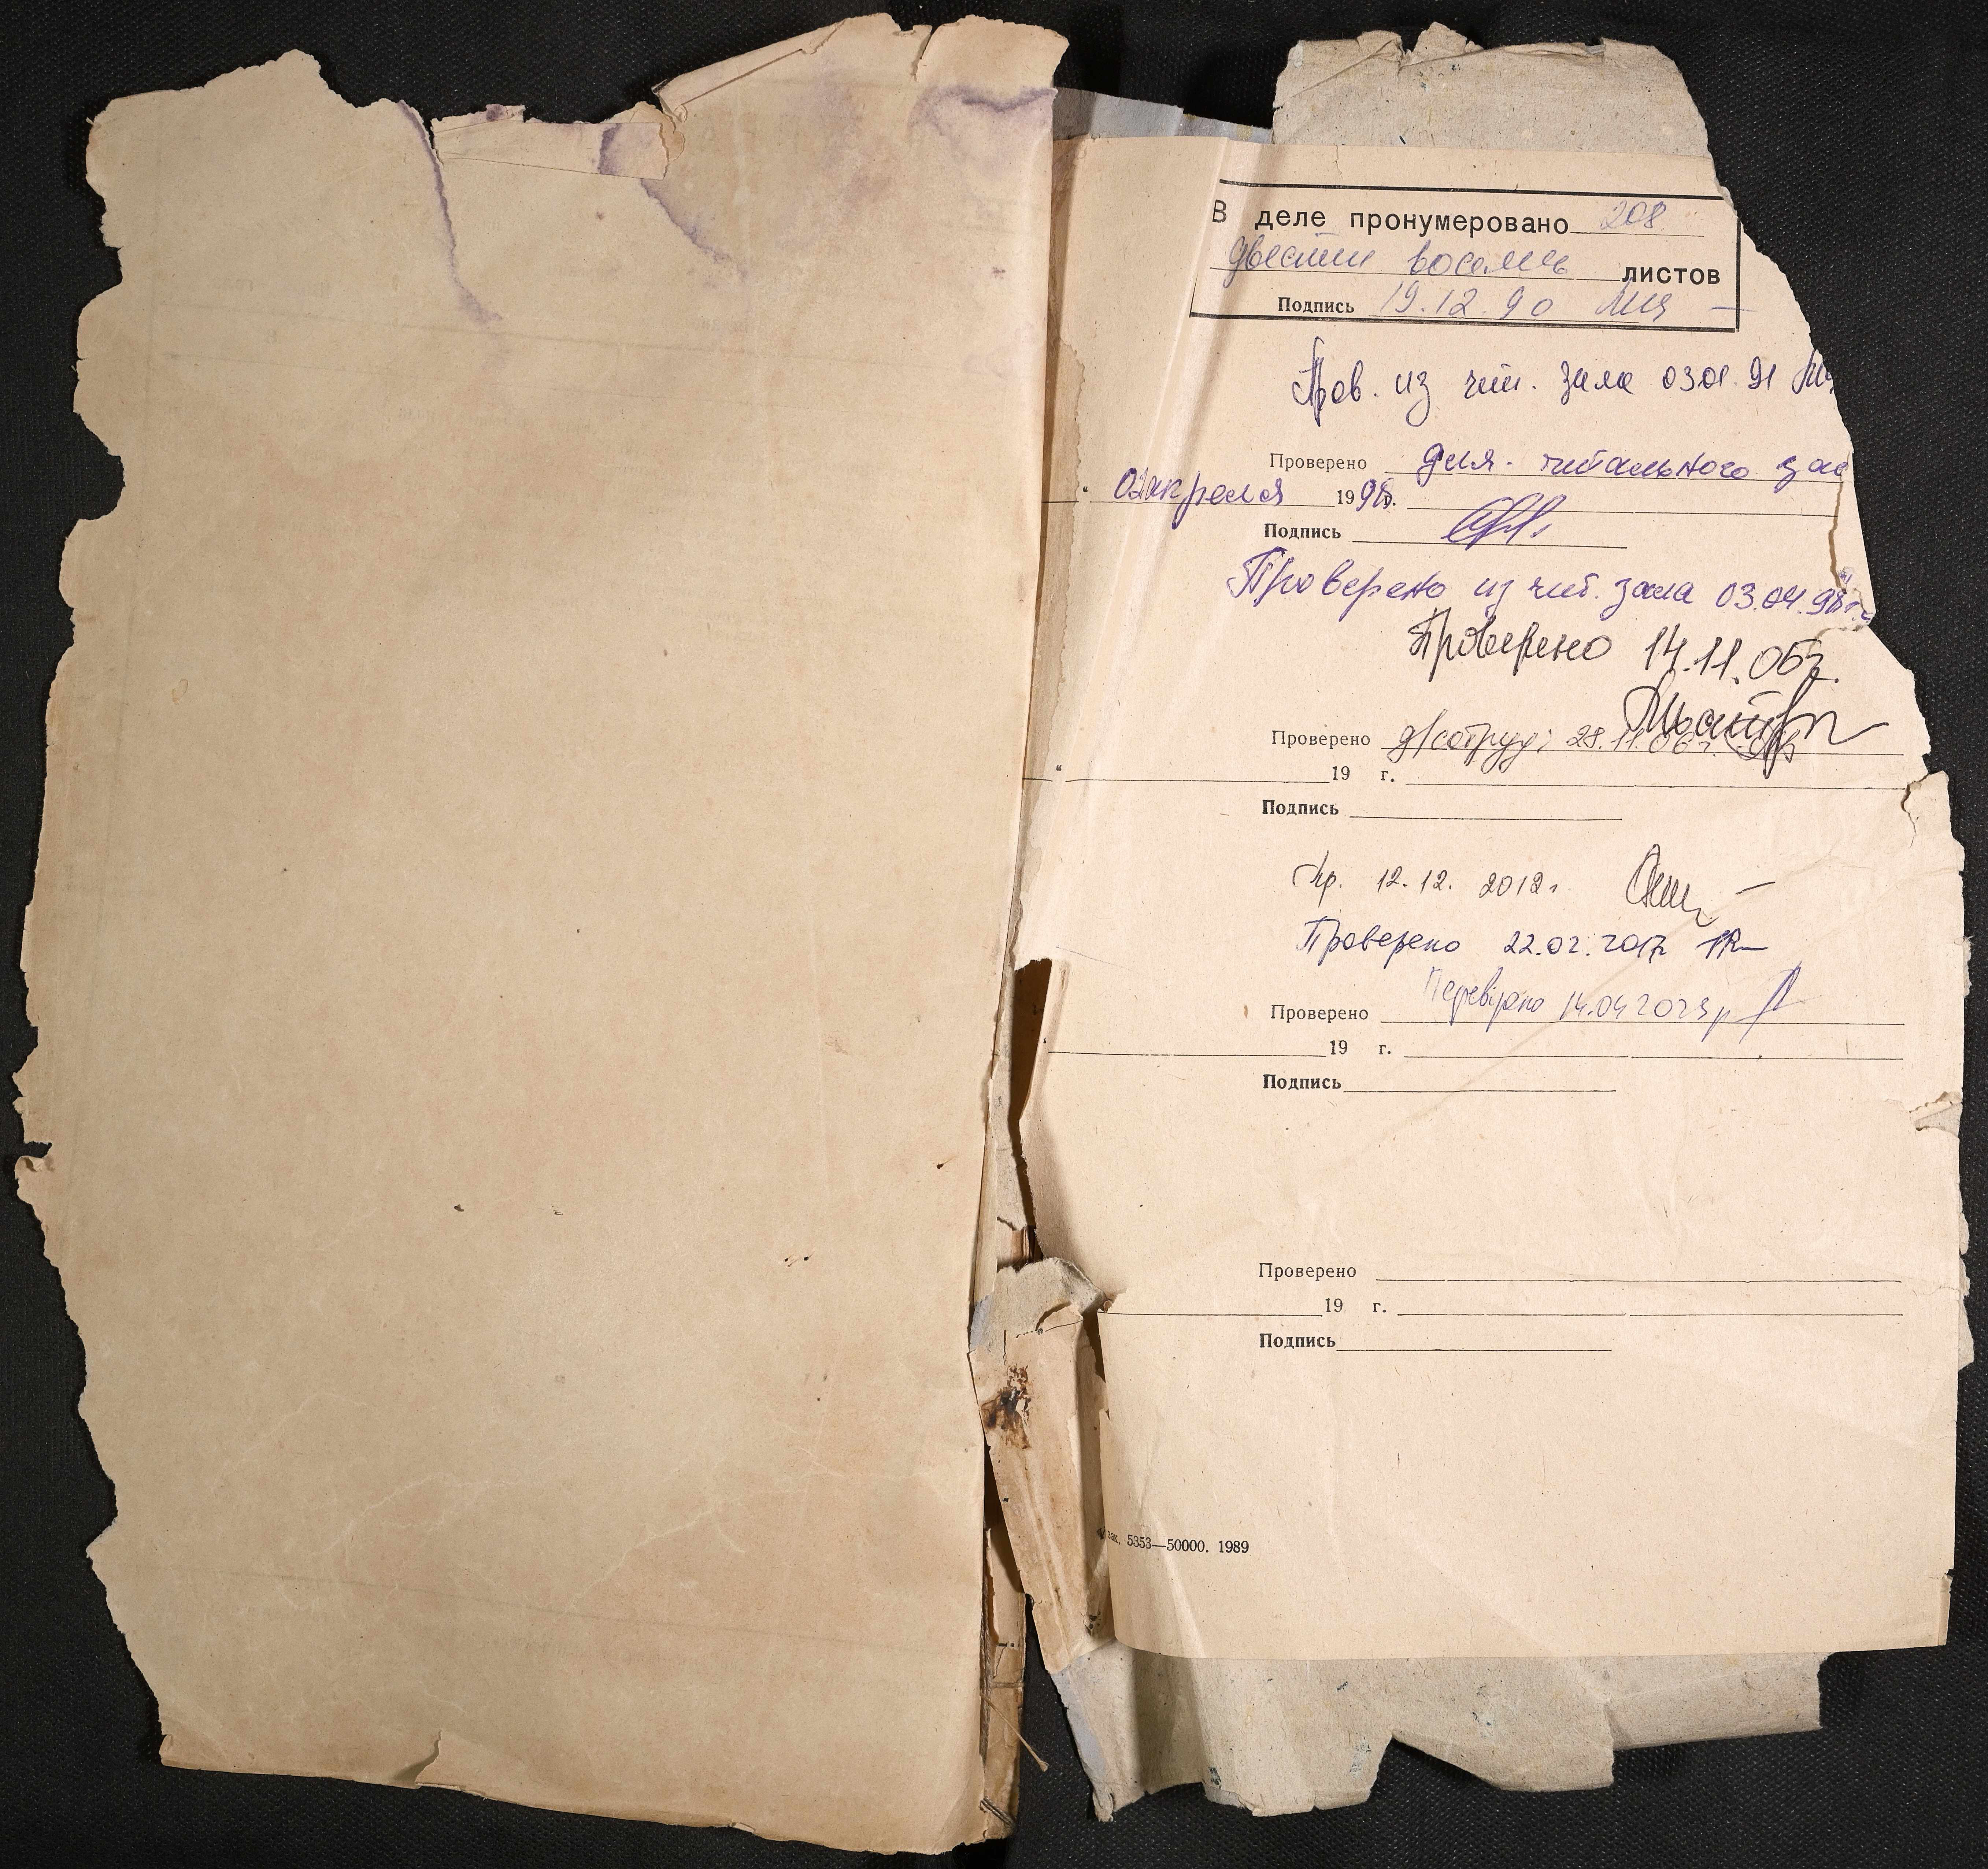 В деле пронумеровано 208
двести восемь листов
Подпись 19.12.90
Пров. из чит. зала 03.01.91
Проверено для читального зал
02 апреля 1998г.
Подпись
Проверено из чит. зала 03.04.98г.
Проверено 14.11.06г.
Проверено д/сотруд. 28.11.06г.
19 г.
Подпись
Пр. 12.12. 2012г.
Проверено 22.02.2017
Перевірено 14.04 2023 р
Проверено
19 г.
Подпись
Проверено
19 г.
Подпись
зак. 5353—50000. 1989